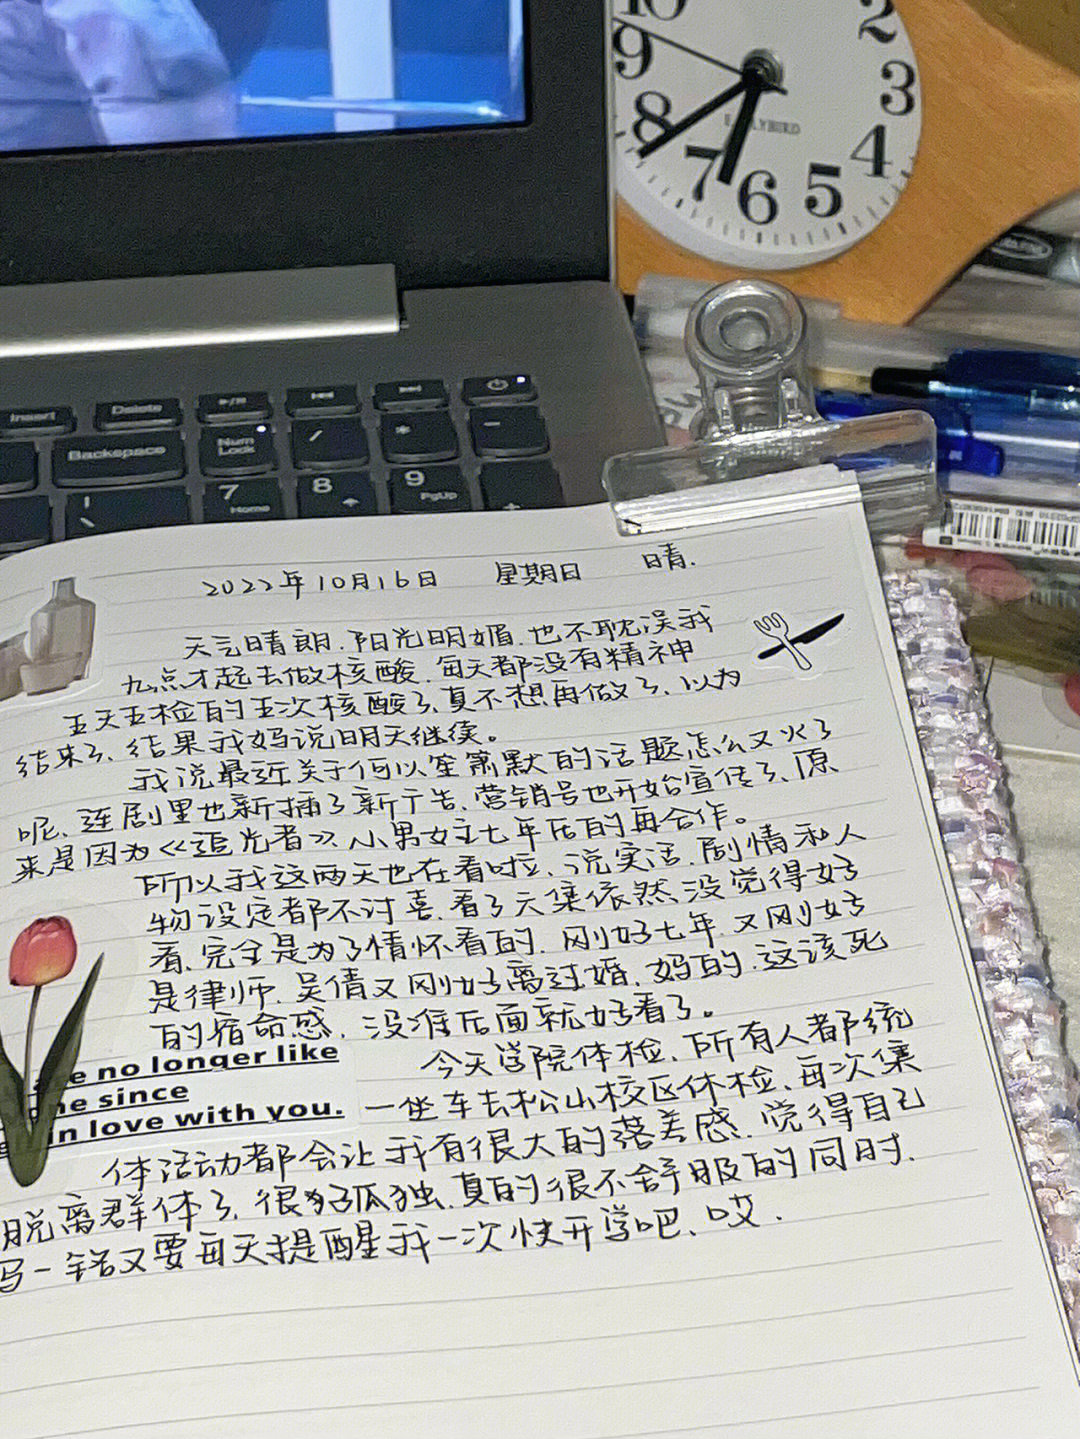 10
2
9
3
8
EARLYBIRD
4
7
6
5
Insert
Delete
Backspace
Num
Lock
/
*
-
7
Home
8
9
PgUp
+
2022年10月16日 星期日 晴.
天气晴朗.阳光明媚.也不耽误我
九点才起去做核酸.每天都没有精神
五天五检的五次核酸了、真不想再做了、以为
结束了、结果我妈说明天继续。
我说最近关于何以笙箫默的话题怎么又火了
呢、连剧里也新插了新广告、营销号也开始宣传了、原
来是因为《追光者》小男女主七年后的再合作。
所以我这两天也在看啦、说实话.剧情和人
物设定都不讨喜.看了六集依然没觉得好
看、完全是为了情怀看的.刚好七年.又刚好
是律师.吴倩又刚好离过婚.妈的.这该死
的宿命感.没准后面就好看了。
no longer like
since
in love with you.
今天学院体检.所有人都统
一坐车去松山校区体检.每次集
体活动都会让我有很大的落差感.觉得自己
脱离群体了.很孤独.真的很不舒服的同时.
另一错又要每天提醒我一次快开学吧、哎.